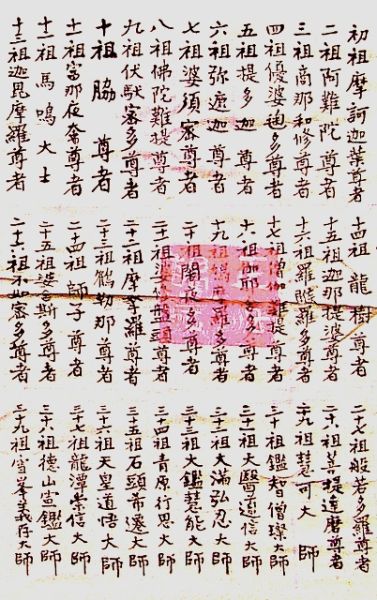 初祖摩訶迦葉尊者
二祖阿難陀尊者
三祖商那和修尊者
四祖優婆毱多尊者
五祖提多迦尊者
六祖弥遮迦尊者
七祖婆須密尊者
八祖佛陀難提尊者
九祖伏馱密多尊者
十祖脇尊者
十一祖富那夜奢尊者
十二祖馬鳴大士
十三祖迦毘摩羅尊者
十四祖龍樹尊者
十五祖迦那提婆尊者
十六祖羅睺羅多尊者
十七祖僧伽難提尊者
十八祖伽耶舍多尊者
十九祖鳩摩羅多尊者
二十祖闍夜多尊者
二十一祖盤頭尊者
二十二祖摩拏羅尊者
二十三祖鶴勒那尊者
二十四祖師子尊者
二十五祖婆舍斯多尊者
二十六祖不如密多尊者
二十七祖般若多羅尊者
二十八祖菩提達磨尊者
二十九祖慧可大師
三十祖鑑智僧璨大師
三十一祖大醫道信大師
三十二祖大滿弘忍大師
三十三祖大鑑慧能大師
三十四祖青原行思大師
三十五祖石頭希遷大師
三十六祖天皇道悟大師
三十七祖龍潭崇信大師
三十八祖德山宣鑑大師
三十九祖雪峯義存大師